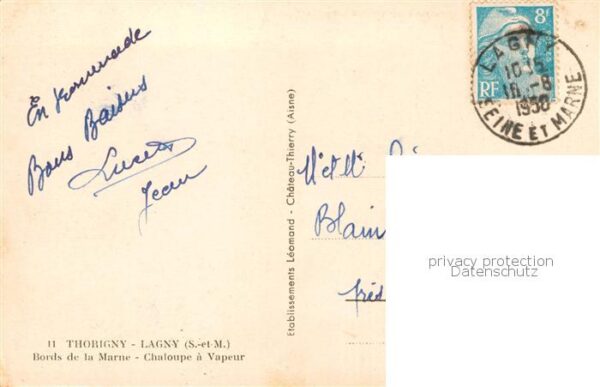 En promenade
Bons Baisers
Lucette
Jean
11 THORIGNY - LAGNY (S.-et-M.)
Bords de la Marne - Chaloupe à Vapeur
Etablissements Léomand - Château-Thierry (Aisne)
8F
RF
LAGNY
1950
SEINE ET MARNE
Mr et Mme
Blain
privacy protection
Datenschutz